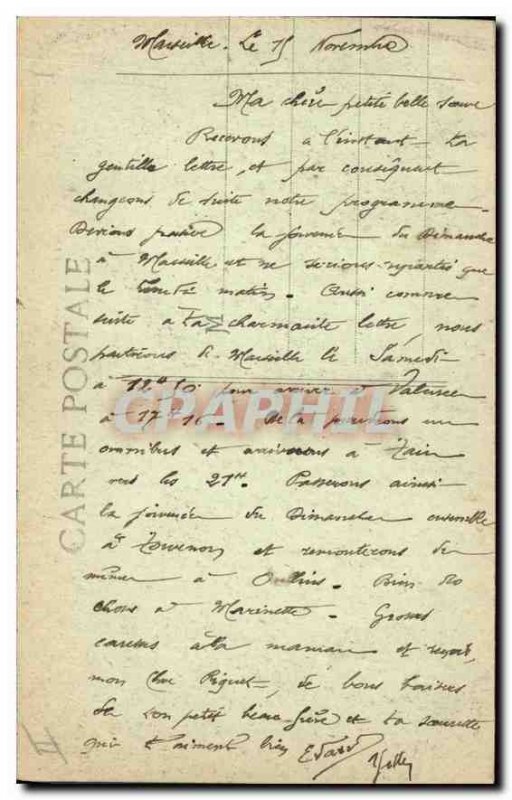 Marseille. Le 15 Novembre
Ma chère petite belle sœur
Recevons à l'instant ta
gentille lettre, et par conséquent
changeons de suite notre programme.
Devions passer la journée du Dimanche
à Marseille et ne serions repartis que
le lundi matin. Aussi comme
suite à ta charmante lettre, nous
partirons de Marseille le Samedi
à pour arriver à Valence
à 17h16. De là prendrons un
omnibus et arriverons à Tain
vers les 21h. Passerons ainsi
la journée du Dimanche ensemble
à Tournon et remonterons de
même à Oullins. Bien do
chous à Marinette. Grosses
caresses à la maman et reçois,
mon cher de bons baisers
de ton petit beau-frère et ta sœurette
qui t'aiment bien
CARTE POSTALE
CPAPHIL